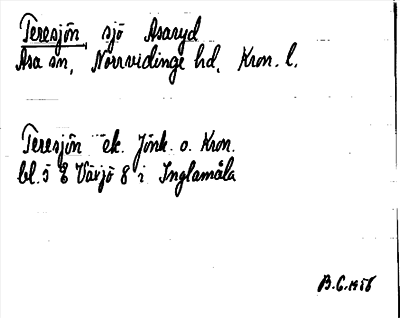 Teresjön, sjö Asaryd
Asa sn, Norrvidinge hd, Kron. l.
Teresjön ek. Jönk. o. Kron.
bl. 5 Växjö 8 i Inglamåla
B.G. 1956